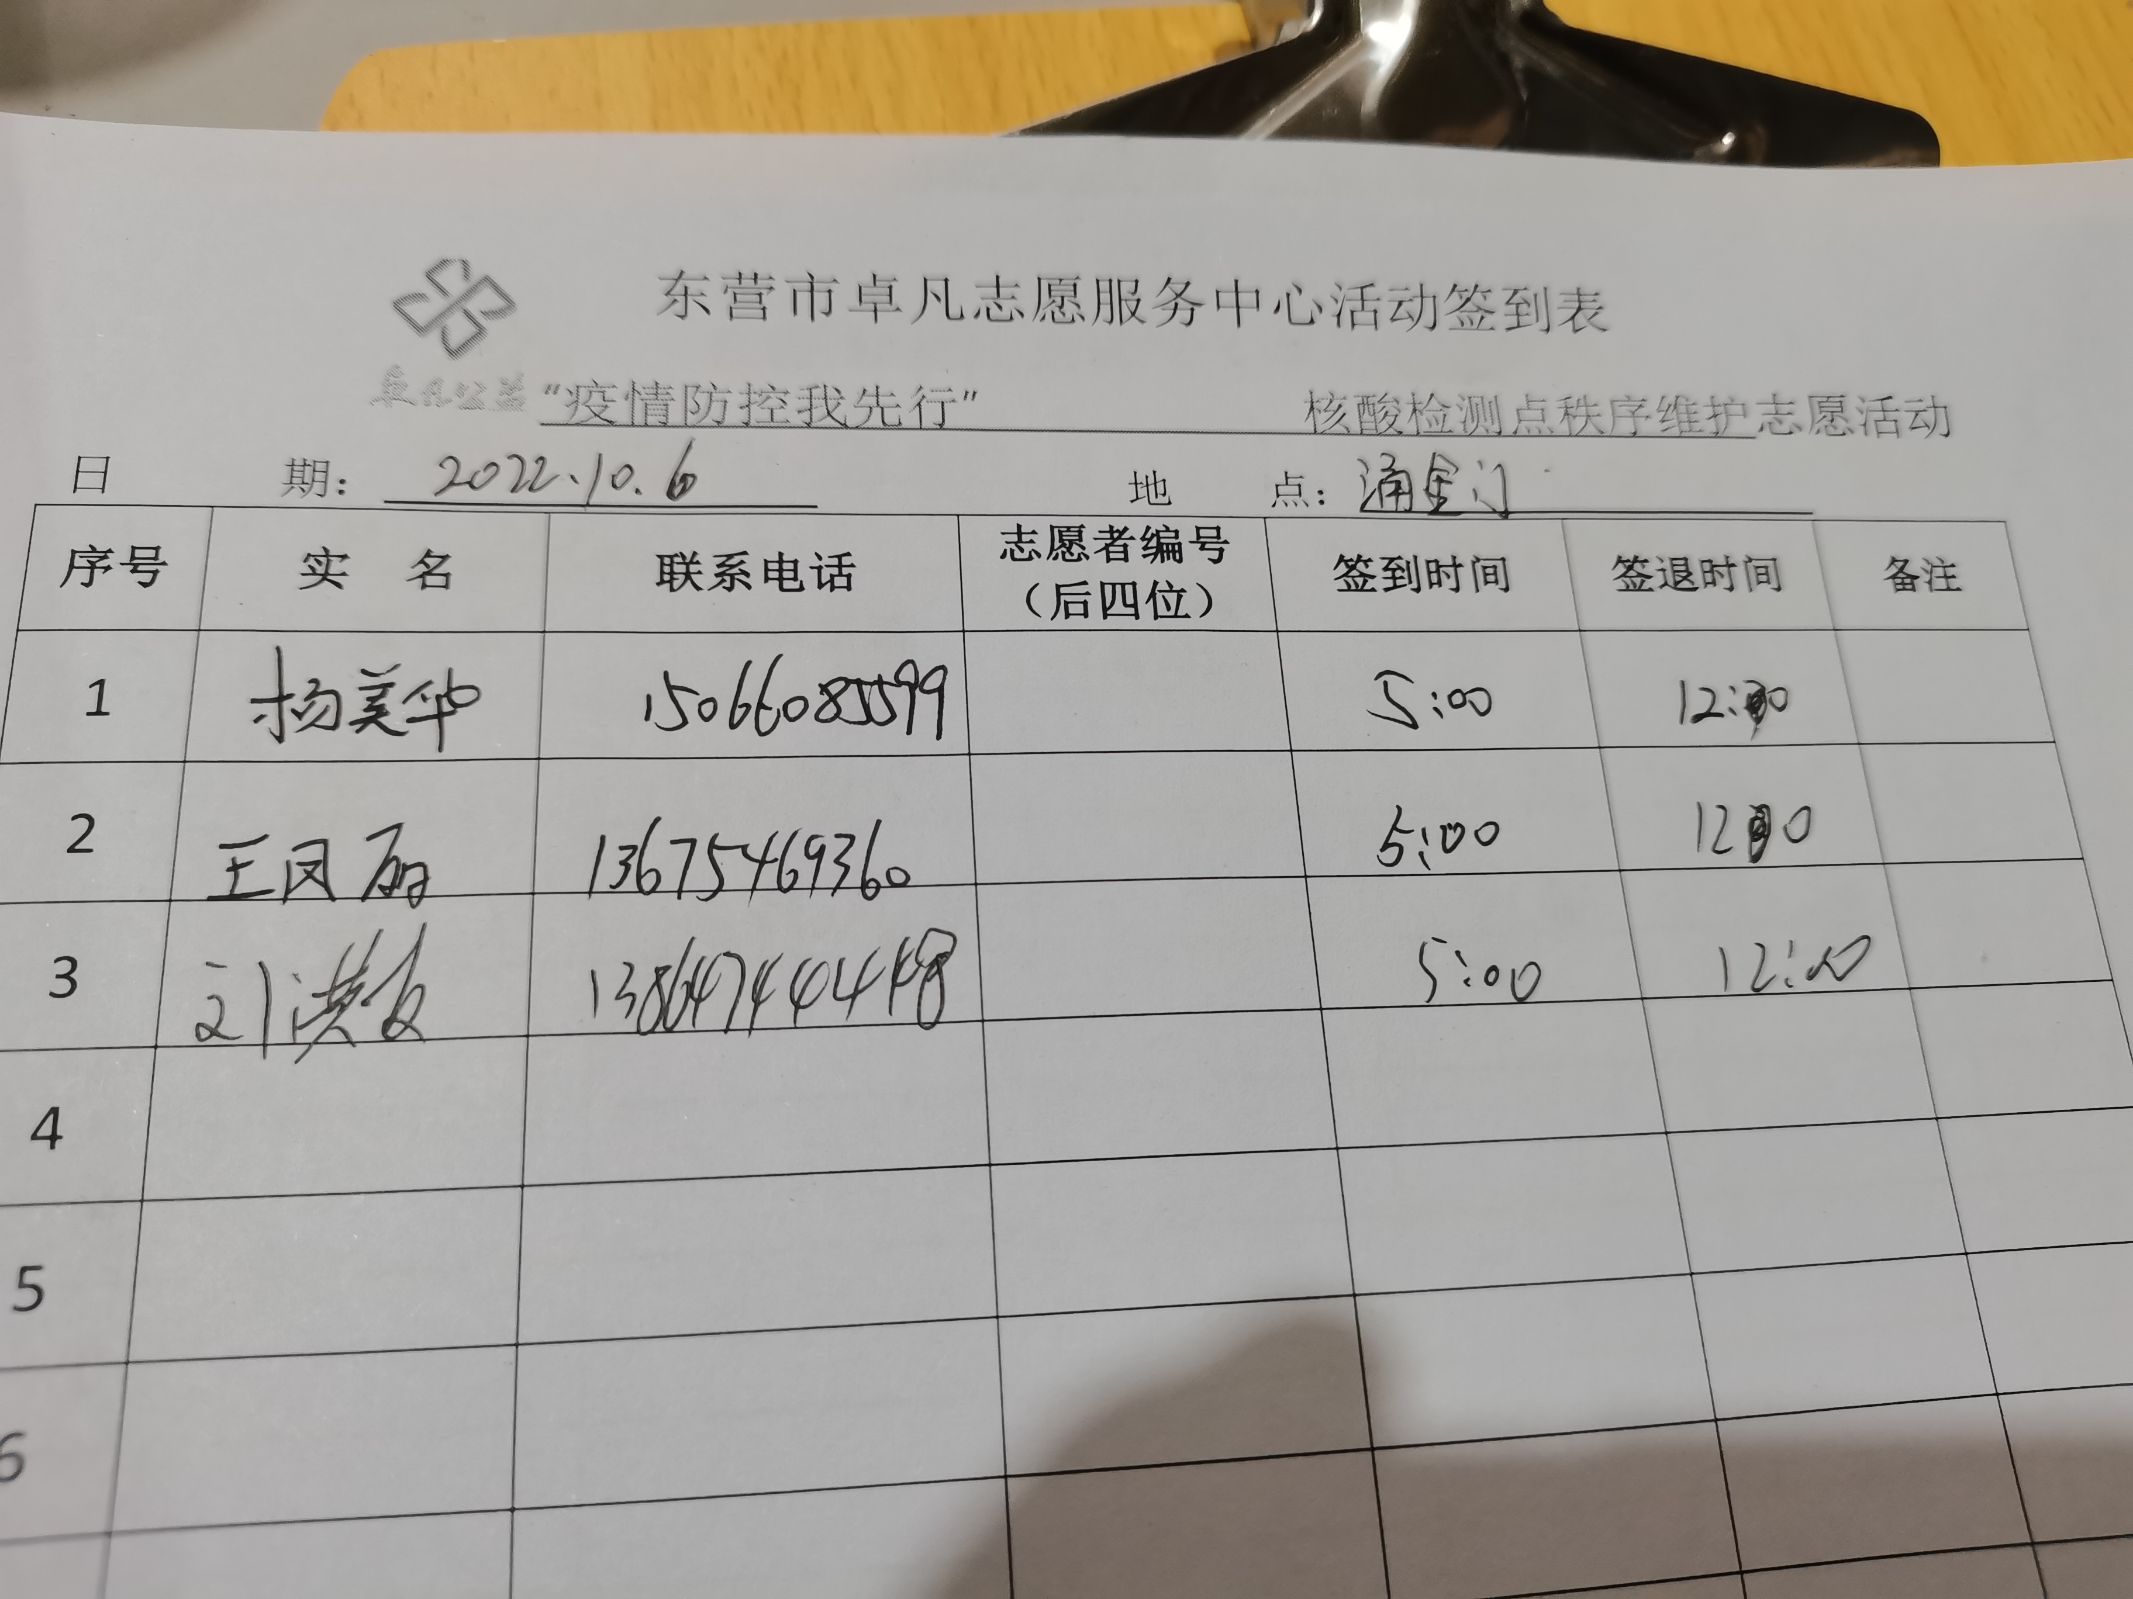 东营市卓凡志愿服务中心活动签到表
卓凡公益 “疫情防控我先行” 核酸检测点秩序维护志愿活动
日 期： 2022.10.6 地 点：涌金门
序号 实 名 联系电话 志愿者编号（后四位） 签到时间 签退时间 备注
1 杨美华 15066085599 5:00 12:00
2 王凤丽 13675469360 5:00 12:00
3 刘洪友 5:00 12:00
4
5
6